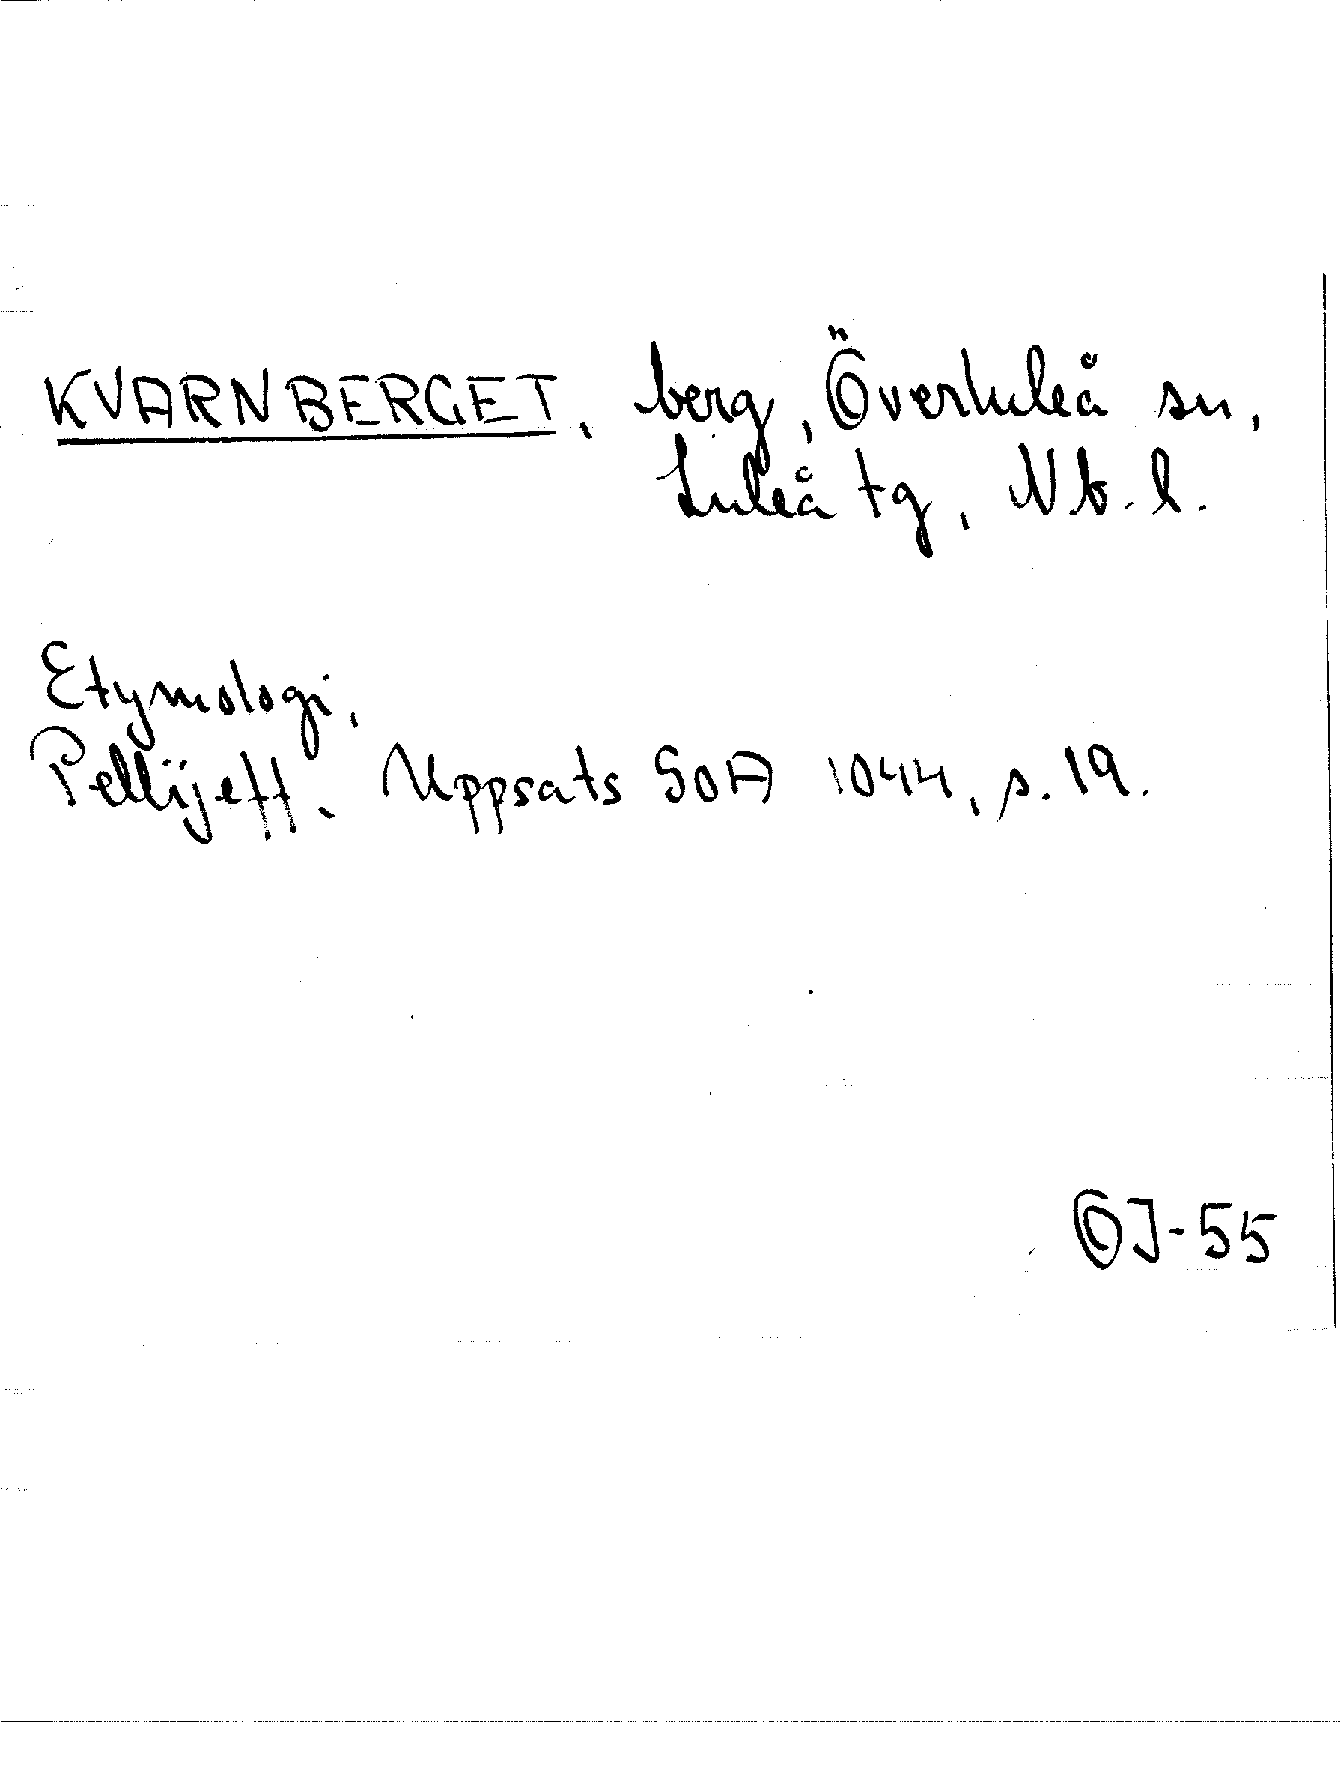 KVARNBERGET, berg, Överluleå sn,
Luleå tg, Nb. l.
Etymologi,
Pellijeff, Uppsats SOA 1044, s. 19.
OJ-55